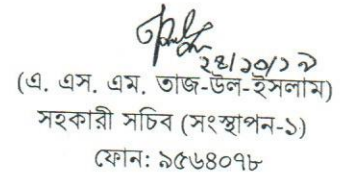 ২৪/১০/১৯
(এ. এস. এম. তাজ-উল-ইসলাম)
সহকারী সচিব (সংস্থাপন-১)
ফোন: ৯৫৬৪০৭৮